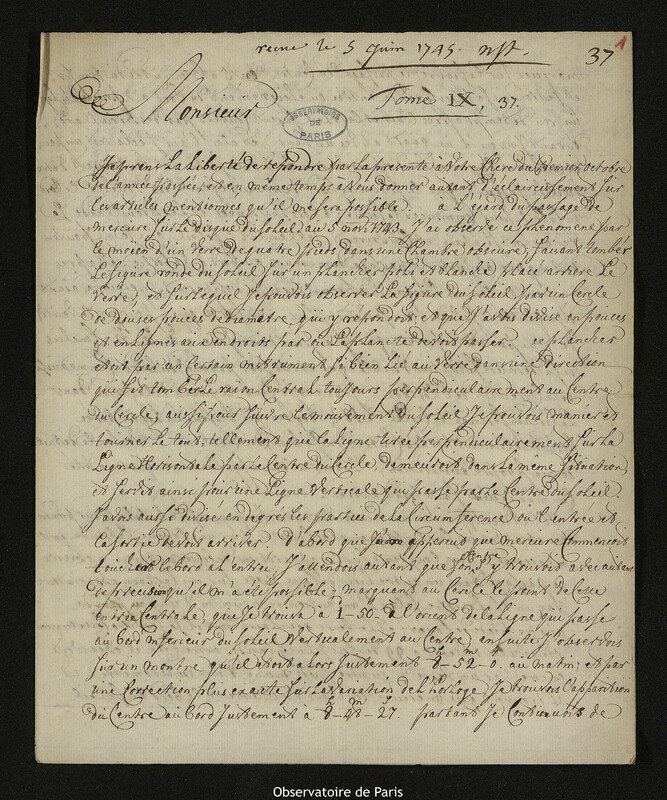 recue le 5 Juin 1745. nst.
37
1
Monsieur
Tome IX, 37.
OBSERVATOIRE
DE
PARIS
Je prens La Liberté de repondre par La presente à Votre Chere du Premier octobre
de L'année passée, et en même temps a Vous donner autant d'eclaircissement sur
les articles mentionnés qu'il me sera possible. à L'egard du passage de
mercure sur Le disque du soleil au 5 nov: 1743. J'ai observé ce phenomene par
le moien d'un Verre de quatre pieds dans une Chambre obscure, faisant tomber
Le figure ronde du soleil sur un plancher poli et blanche place arriere Le
Verre, et sur lequel Je pouvois observer La figure du soleil par un Cercle
de douse pouces de diametre, qui y respondoit et que J'avois divisé en pouces
et en Lignes aux endroits par ou La planete devoit passer. ce plancher
etoit par un Certain instrument si bien Lié au Verre dans une direction
qui fit tomber Le raion Central toujours perpendiculairement au Centre
du Cercle, aussi pour suivre Le mouvement du soleil Je pouvois manier et
tourner Le tout, tellement que La Ligne tirée perpendiculairement sur La
Ligne Horisontale par Le Centre du Cercle, demeuroit dans La même situation,
et servit ainsi pour une Ligne Verticale qui passe par Le Centre du soleil.
J'avois aussi divisé en degrés les parties de La Circumference ou L'entrée et
La sortie devoit arriver. d'abord que apperceus que mercure Commencoit
toucher le bord a L'entrée, J'attendois autant que Centre y trouvois avec autant
de precision qu'il m'a eté possible, marquant au Cercle le point de Cette
entrée Centrale, que Je trouva à 1-50 à l'orient de La Ligne qui passe
au bord inferieur du soleil Verticalement au Centre, ensuite J'observois
sur un montre qu'il etoit alors Justement 8h-52m-0. au matin, et par
une Correction plus exacte sur La Variation de L'Horloge Je trouvois L'apparition
du Centre au bord Justement a 8h-48m-27. partant Je Continuois de
Observatoire de Paris